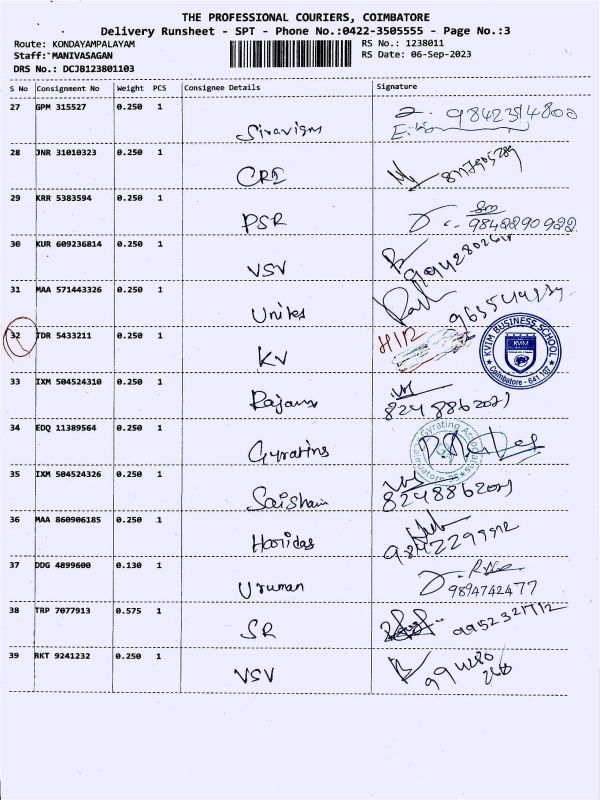 THE PROFESSIONAL COURIERS, COIMBATORE
Delivery Runsheet - SPT - Phone No.:0422-3505555 - Page No.:3
Route: KONDAYAMPALAYAM RS No.: 1238011
Staff: MANIVASAGAN RS Date: 06-Sep-2023
DRS No.: DCJB123801103
S No Consignment No Weight PCS Consignee Details Signature
27 GPM 315527 0.250 1
9842314800
28 JNR 31010323 0.250 1
CRI
29 KRR 5383594 0.250 1
PSR 9842290922
30 KUR 609236814 0.250 1
VSV
31 MAA 571443326 0.250 1
Unites
32 TDR 5433211 0.250 1
KV
KVIM BUSINESS SCHOOL
KVIM
Coimbatore - 641 107
33 IXM 504524310 0.250 1
8248862021
34 EDQ 11389564 0.250 1
Gyrating
35 IXM 504524326 0.250 1
8248862021
36 MAA 860906185 0.250 1
Haridas
37 DDG 4899600 0.130 1
Uruman 9894742477
38 TRP 7077913 0.575 1
SR
39 RKT 9241232 0.250 1
VSV